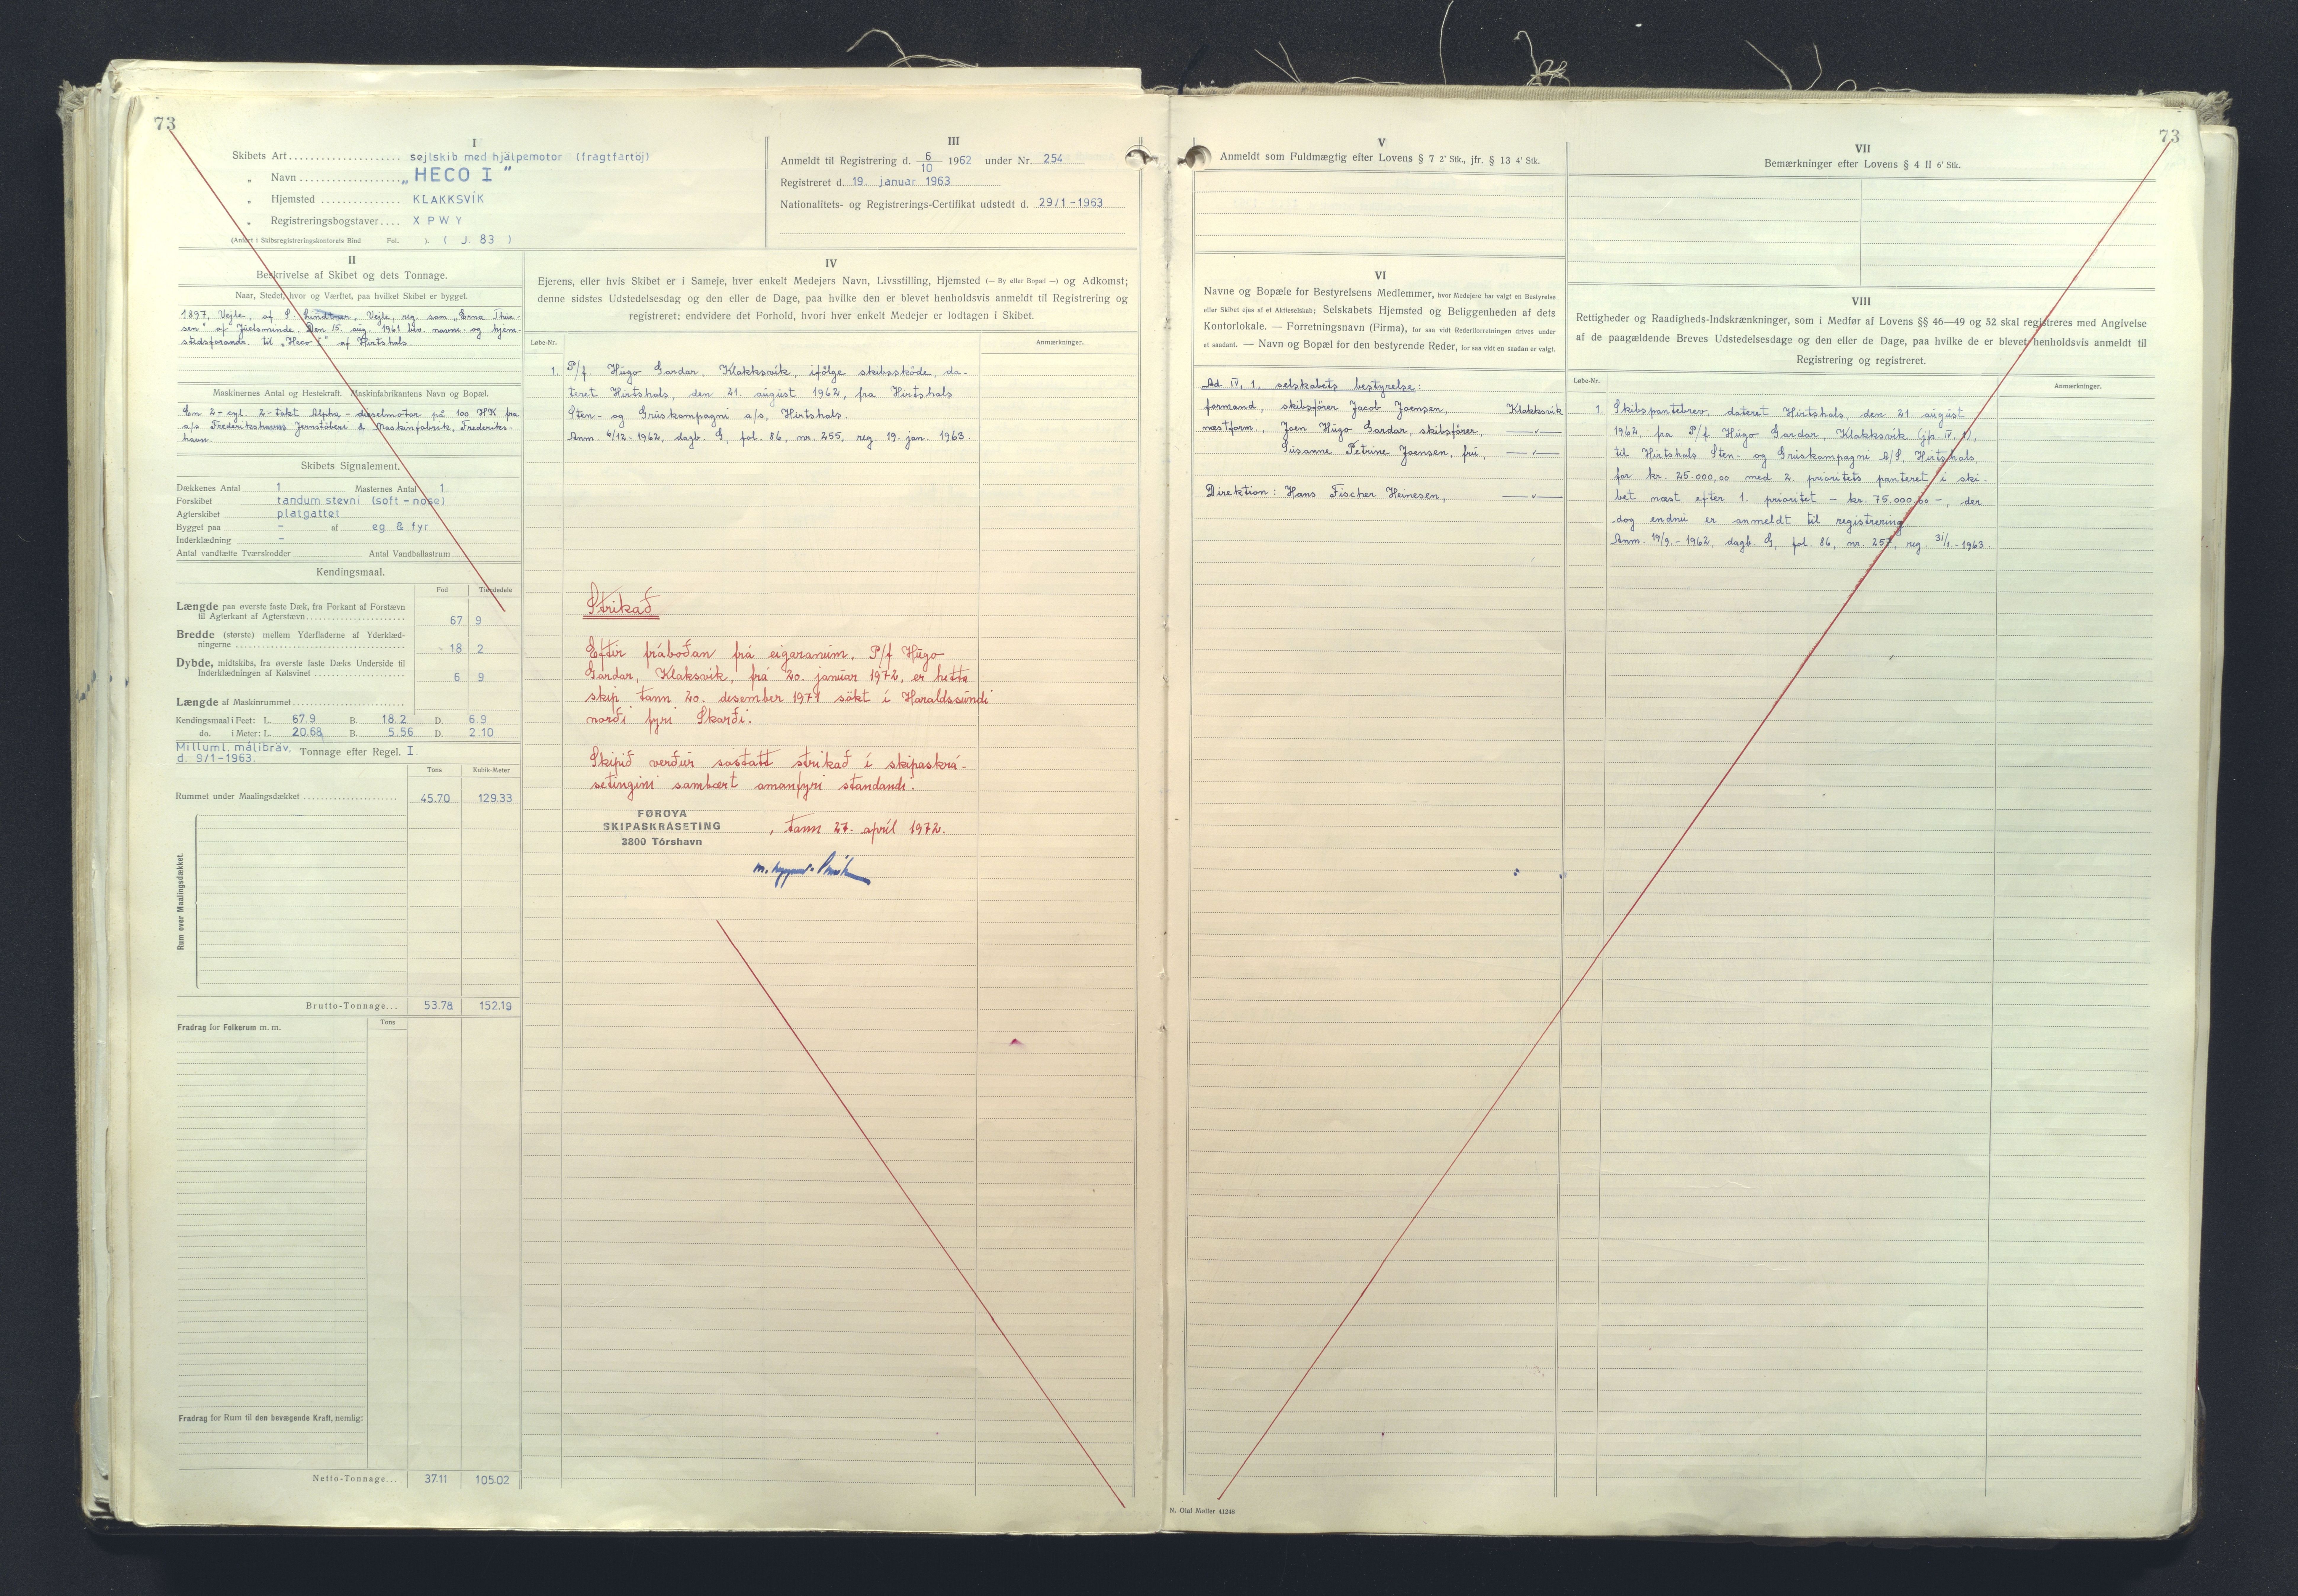 73
I
Skibets Art.................... sejlskib med hjälpemotor (fragtfartöj)
„ Navn ................... „HECO I”
„ Hjemsted ............... KLAKKSVIK
„ Registreringsbogstaver.... X P W Y
(Anført i Skibsregistreringskontorets Bind Fol. ). ( J. 83 )
III
Anmeldt til Registrering d. 6/10 1962 under Nr. 254
Registreret d. 19. januar 1963
Nationalitets- og Registrerings-Certifikat udstedt d. 29/1-1963
II
Beskrivelse af Skibet og dets Tonnage.
Naar, Stedet, hvor og Værftet, paa hvilket Skibet er bygget.
1897, Vejle, af S. Lindtner, Vejle, reg. som „Enna Thue-
sen” af Juelsminde. Den 15. aug. 1961 bev. navne- og hjem-
stedsforandr. til „Heco I” af Hirtshals.
Maskinernes Antal og Hestekraft. Maskinfabrikantens Navn og Bopæl.
En 2-cyl. 2-takt Alpha-dieselmotor på 100 HK fra
a/s Frederikshavns Jernstöberi & Maskinfabrik, Frederiks-
havn.
Skibets Signalement.
Dækkenes Antal 1 Masternes Antal 1
Forskibet tandum stevni (soft-nose)
Agterskibet platgattet
Bygget paa - af eg & fyr
Inderklædning -
Antal vandtætte Tværskodder Antal Vandballastrum
Kendingsmaal.
Fod Tiendedele
Længde paa øverste faste Dæk, fra Forkant af Forstævn
til Agterkant af Agterstævn................ 67 9
Bredde (største) mellem Yderfladerne af Yderklæd-
ningerne .................... 18 2
Dybde, midtskibs, fra øverste faste Dæks Underside til
Inderklædningen af Kølsvinet .............. 6 9
Længde af Maskinrummet....................
Kendingsmaal i Feet: L. 67.9 B. 18.2 D. 6.9
do. i Meter: L. 20.68 B. 5.56 D. 2.10
Milluml. målibräv. Tonnage efter Regel. I.
d. 9/1-1963.
Tons Kubik-Meter
Rummet under Maalingsdækket .................... 45.70 129.33
Rum over Maalingsdækket.
Brutto-Tonnage... 53.78 152.19
Fradrag for Folkerum m. m. Tons
Fradrag for Rum til den bevægende Kraft, nemlig:
Netto-Tonnage... 37.11 105.02
IV
Ejerens, eller hvis Skibet er i Sameje, hver enkelt Medejers Navn, Livsstilling, Hjemsted (— By eller Bopæl —) og Adkomst;
denne sidstes Udstedelsesdag og den eller de Dage, paa hvilke den er blevet henholdsvis anmeldt til Registrering og
registreret; endvidere det Forhold, hvori hver enkelt Medejer er lodtagen i Skibet.
Løbe-Nr. Anmærkninger.
1. P/f. Hugo Gardar, Klakksvik, ifölge skibsskóde, da-
teret Hirtshals, den 21. august 1962, fra Hirtshals
Sten- og Gruskompagni a/s, Hirtshals.
Anm. 6/12-1962, dagb. G, fol. 86, nr. 255, reg. 19. jan. 1963.
Strikað
Eftir fráboðan frá eigaranum, P/f Hugo
Gardar, Klaksvik, frá 20. januar 1972, er hetta
skip tann 20. desember 1971 sökt i Haraldssundi
norði fyri Skarði.
Skipið verður sostatt strikað i skipaskrá-
setingini sambært omanfyri standandi.
FØROYA
SKIPASKRÁSETING
3800 Tórshavn
, tann 27. april 1972.
73
V
Anmeldt som Fuldmægtig efter Lovens § 7 2' Stk., jfr. § 13 4' Stk.
VII
Bemærkninger efter Lovens § 4 II 6' Stk.
VI
Navne og Bopæle for Bestyrelsens Medlemmer, hvor Medejere har valgt en Bestyrelse
eller Skibet ejes af et Aktieselskab; Selskabets Hjemsted og Beliggenheden af dets
Kontorlokale. — Forretningsnavn (Firma), for saa vidt Rederiforretningen drives under
et saadant. — Navn og Bopæl for den bestyrende Reder, for saa vidt en saadan er valgt.
Ad IV, 1, selskabets bestyrelse:
formand, skibsförer Jacob Joensen, Klakksvik
næstform., Joen Hugo Gardar, skibsförer, —〃—
Susanne Petrine Joensen, fru, —〃—
Direktion: Hans Fischer Heinesen, —〃—
VIII
Rettigheder og Raadigheds-Indskrænkninger, som i Medfør af Lovens §§ 46—49 og 52 skal registreres med Angivelse
af de paagældende Breves Udstedelsesdage og den eller de Dage, paa hvilke de er blevet henholdsvis anmeldt til
Registrering og registreret.
Løbe-Nr. Anmærkninger.
1. Skibspantebrev, dateret Hirtshals, den 21. august
1962, fra P/f Hugo Gardar, Klakksvik (jfr. IV, 1),
til Hirtshals Sten- og Gruskompagni A/S, Hirtshals,
for kr. 25.000,00 med 2. prioritets panteret i ski-
bet næst efter 1. prioritet - kr. 75.000,00 -, der
dog endnu er anmeldt til registrering
Anm. 19/9.-1962, dagb. G, fol. 86, nr. 257, reg. 31/1.-1963.
N. Olaf Møller 41248